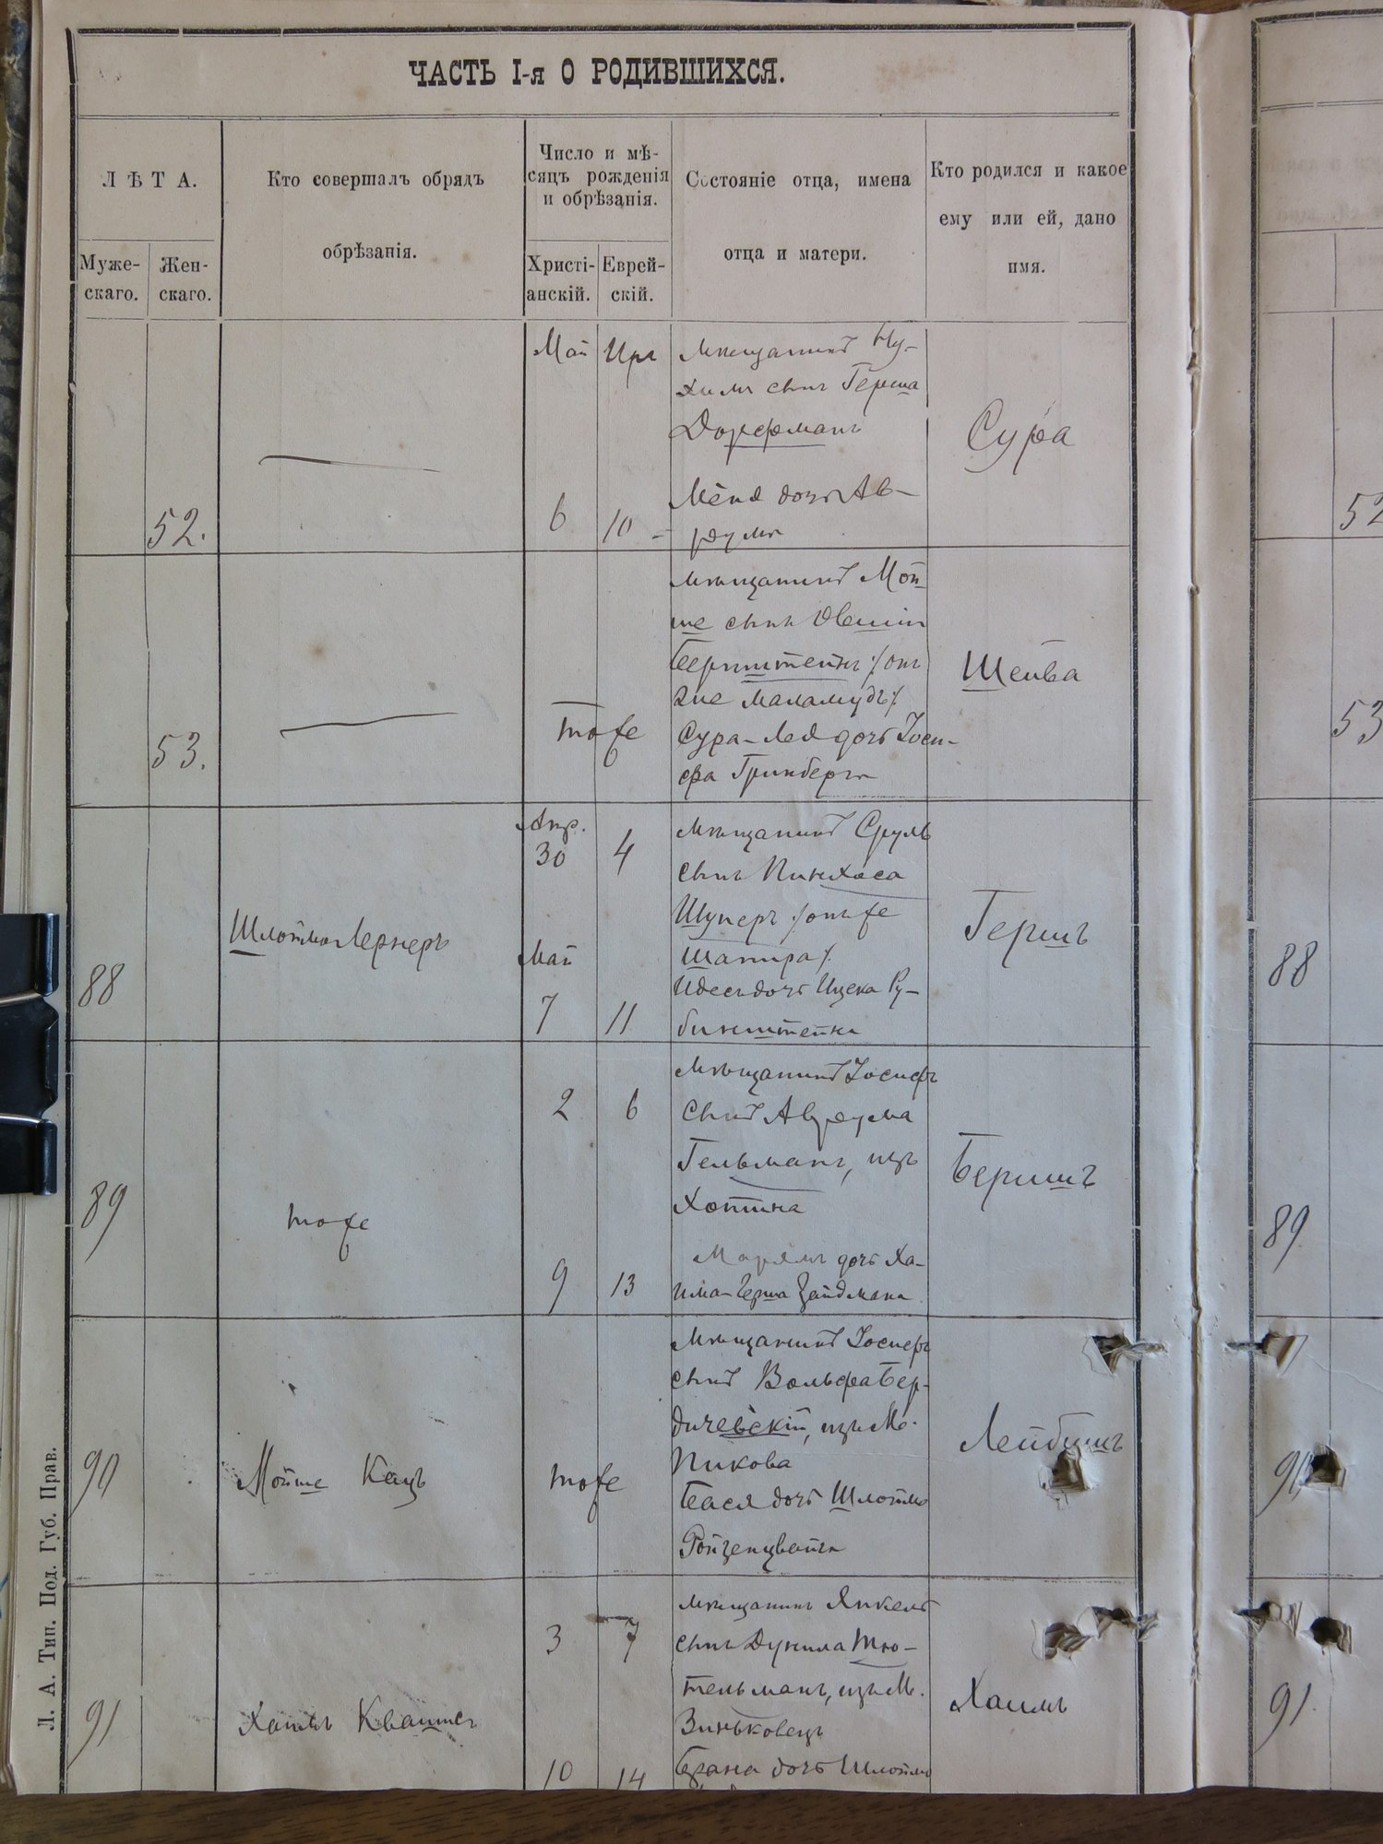 ЧАСТЬ I-я О РОДИВШИХСЯ.
Л Ѣ Т А.
Муже-
скаго.
Жен-
скаго.
Кто совершалъ обрядъ
обрѣзанія.
Число и мѣ-
сяцъ рожденія
и обрѣзанія.
Христі-
анскій.
Еврей-
скій.
Состояніе отца, имена
отца и матери.
Кто родился и какое
ему или ей, дано
имя.
52.
Май
6
10
мѣщанинъ Ну-
химъ сынъ Герша
Дорфманъ
Меня дочь Ав-
рума
Сура
52
53.
тоже
мѣщанинъ Мой
ше сынъ Овший
Бернштейнъ /:онъ
же Маламудъ:/
Сура-Лея дочь Іоси-
фа Гринберга
Шейва
53
88
Шлоймо Лернеръ
Апр.
30
4
Май
7
11
мѣщанинъ Сруль
сынъ Пинхаса
Шуперъ /:онъ же
Шапира:/
Идесъ дочь Ицека Ру-
бинштейна
Гершъ
88
89
тоже
2
6
9
13
мѣщанинъ Іосифъ
сынъ Аврума
Гельманъ, изъ
Хотина
Марямъ дочь Ха-
има-Герша Зайдмана
Бершъ
89
90
Мойше Кацъ
тоже
мѣщанинъ Іосифъ
сынъ Вольфа Бер-
дичевскій, изъ м.
Пикова
Бася дочь Шлоймо
Ройзенцвайга
Лейбишъ
90
91
Хаимъ
3
7
10
14
мѣщанинъ Янкель
сынъ Дунила Тю-
тельманъ, изъ м.
Зиньковецъ
Брана дочь Шлоймо
Хаимъ
91
Л. А. Тип. Под. Губ. Прав.